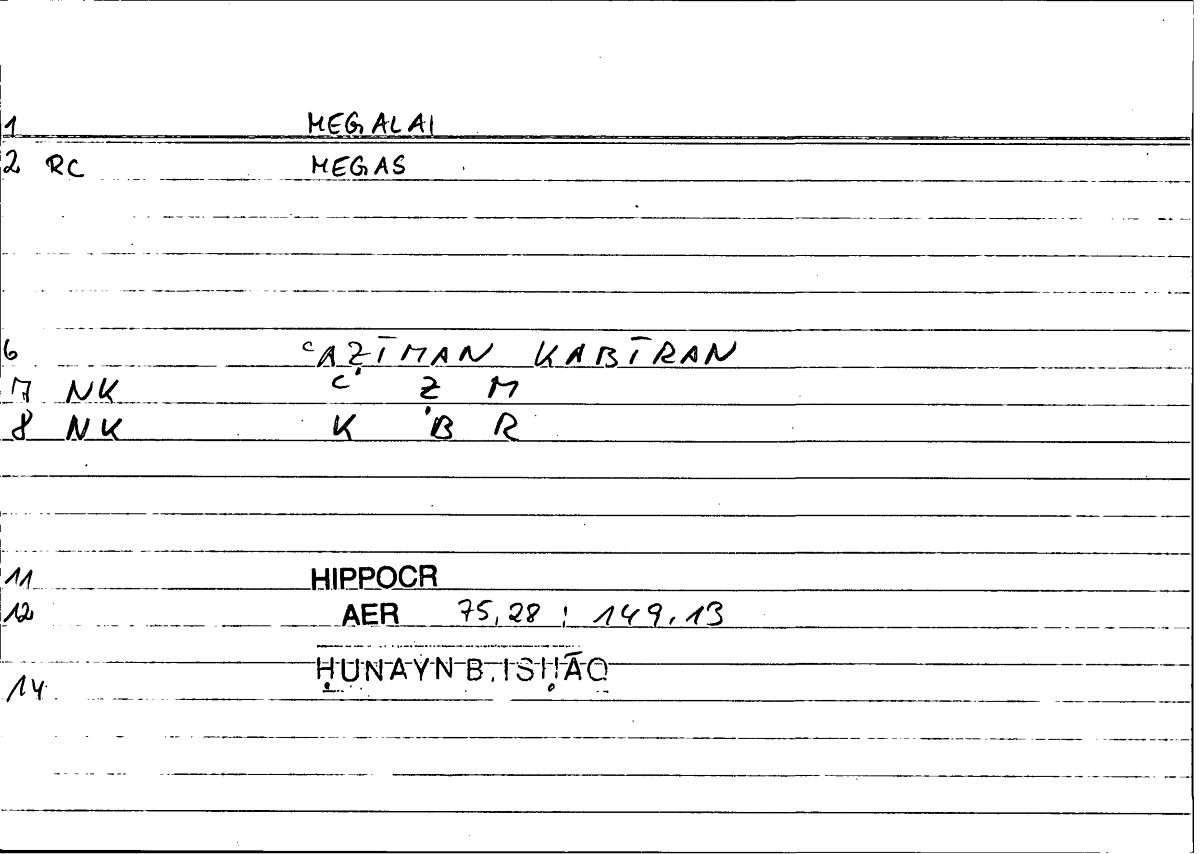 1 MEGALAI
2 RC MEGAS
6 ʿAẒĪMAN KABĪRAN
7 NK ʿ Ẓ M
8 NK K B R
11 HIPPOCR
12 AER 75,28 ; 149,13
14 ḤUNAYN B. ISḤĀQ